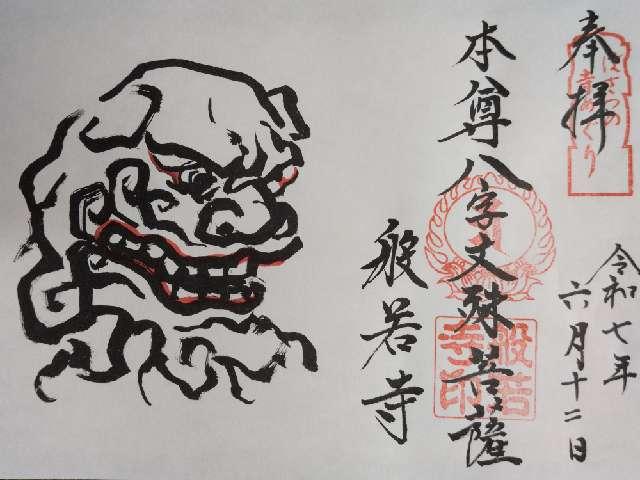 奉拝
はすの
寺めぐり
令和七年
六月十二日
本尊八字文殊菩薩
般若寺
般若寺印